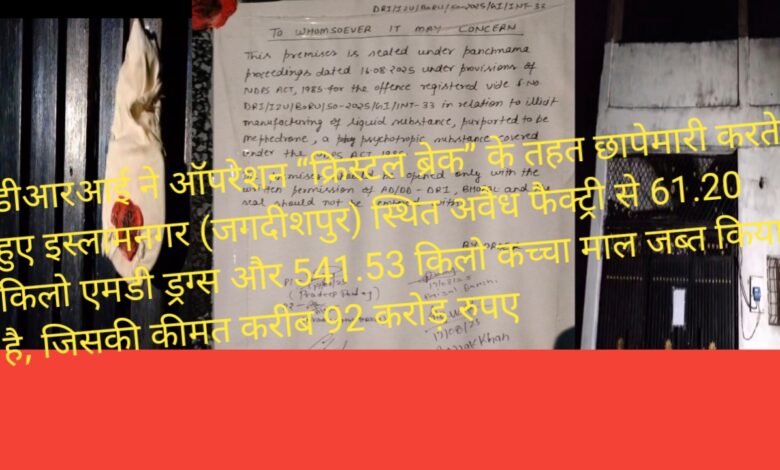 DRI/IZU/BORU/50-2025/GI/INT-33
TO WHOMSOEVER IT MAY CONCERN
This premises is sealed under panchnama
proceedings dated 16.08.2025 under provisions of
NDPS ACT, 1985 for the offence registered vide F.No.
DRI/IZU/BORU/50-2025/GI/INT-33 in relation to illicit
manufacturing of liquid substance, purported to be
mephedrone, a psychotropic substance covered
under the NDPS ACT 1985
premises should be opened only with the
written permission of AD/DD-DRI, BHOPAL and the
seal should not be
डीआरआई ने ऑपरेशन “क्रिस्टल बेक” के तहत छापेमारी करते
हुए इस्लामनगर (जगदीशपुर) स्थित अवैध फैक्ट्री से 61.20
किलो एमडी ड्रग्स और 541.53 किलो कच्चा माल जब्त किया
है, जिसकी कीमत करीब 92 करोड़ रुपए
BY ORDER
17/08/25
Khan